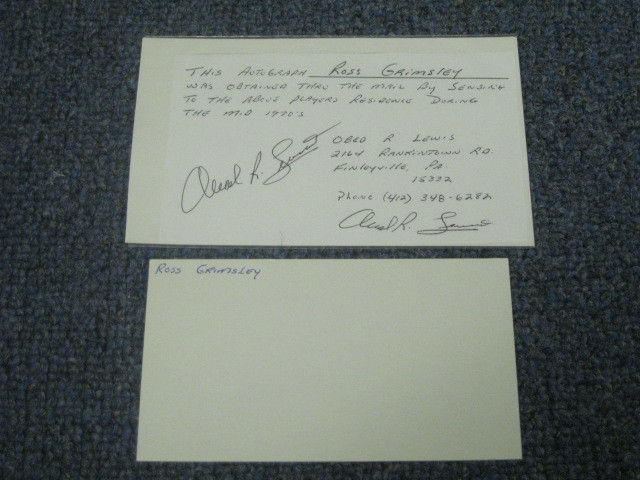 THIS AUTOGRAPH ROSS GRIMSLEY
WAS OBTAINED THRU THE MAIL BY SENDING
TO THE ABOVE PLAYERS RESIDENCE DURING
THE MID 1970'S
OBED R LEWIS
2164 RANKINTOWN RD.
FINLEYVILLE, PA
15332
PHONE (412) 348-6282
Obed R. Lewis
Obed R. Lewis
ROSS GRIMSLEY